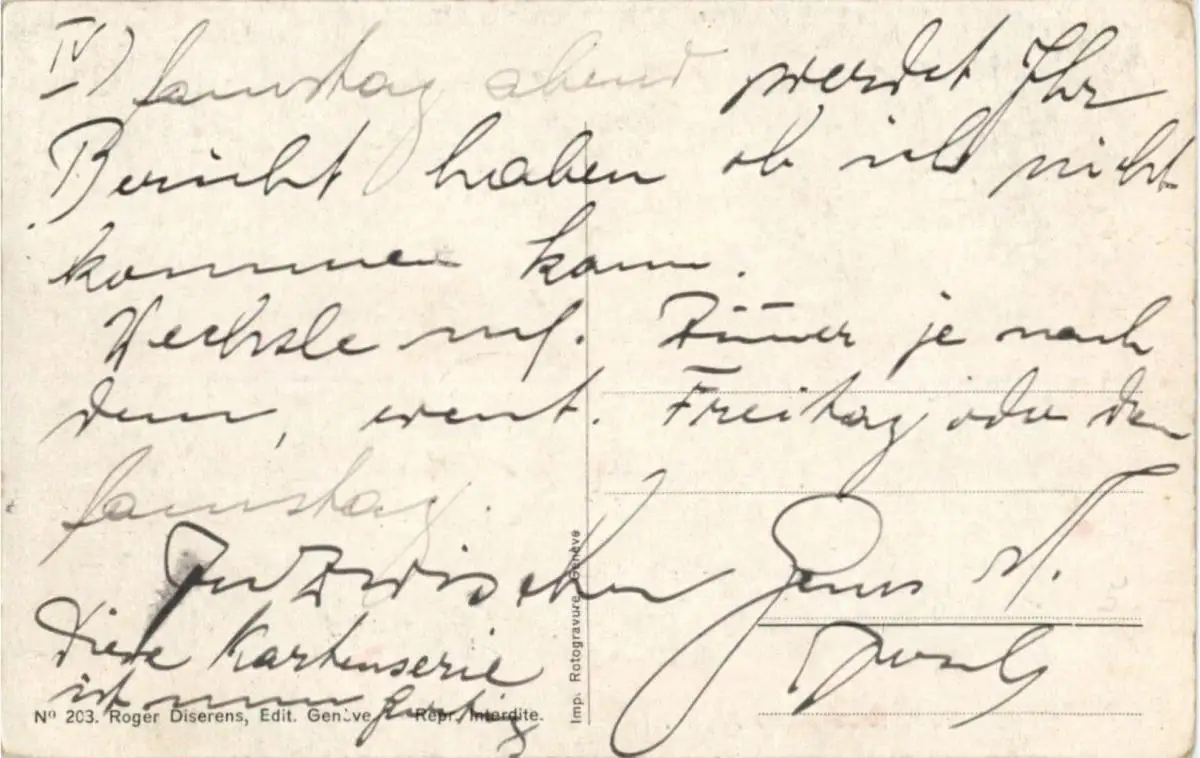 IV) Samstag abend werdet Ihr
Bericht haben ob ich nicht
kommen kann.
Wechsle auf. Zimmer je nach
dem, event. Freitag oder den
Samstag.
Inzwischen
Diese Kartenserie
ist nun
Nº 203. Roger Diserens, Edit. Genève Repr. Interdite.
Imp. Rotogravure Genève